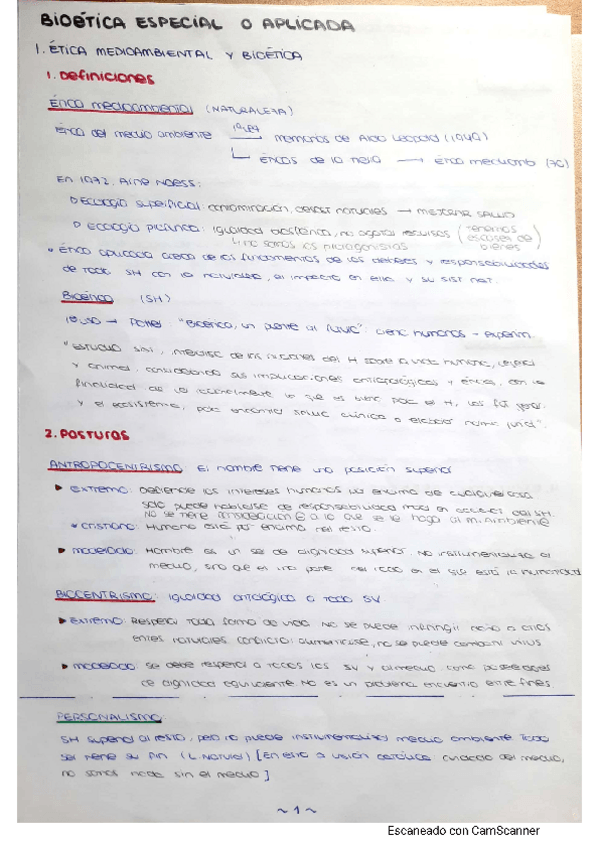 BIOÉTICA ESPECIAL O APLICADA
1. ÉTICA MEDIOAMBIENTAL Y BIOÉTICA
1. Definiciones
Ética medioambiental (NATURALEZA)
Ética del medio ambiente memorias de Aldo Leopold (1949)
Éticas de la tierra → Ética (70)
En 1972, Arne Naess:
Ecología superficial: contaminación, naturales → mejorar salud
Ecología profunda: igualdad no agota recursos (tenemos
escasez de
bienes)
no somos los protagonistas
Ética aplicada acerca de los fundamentos de los deberes y responsabilidades
de todo SH con la naturaleza, el impacto en ella y su sist nat.
Bioética (SH)
→ Potter "Bioética, un puente al futuro": cienc humanas - experim.
"Estudio de las acciones del H sobre la vida humana, vegetal
y animal, considerando sus implicaciones antropológicas y éticas, con la
finalidad de lo que es bueno para el H, las fut gener.
y el ecosistema, para encontrar clínica o elaborar norma juríd".
2. POSTURAS
ANTROPOCENTRISMO: El hombre tiene una posición superior
▸ EXTREMO: Defiende los intereses humanos por encima de cualquier cosa
Solo puede hablarse de responsabilidad moral en acciones del SH.
No se tiene consideración a lo que se le haga al m. Ambiente
Cristiano: Humano está por encima del resto.
▸ Moderado: Hombre es un ser de dignidad superior. No instrumentaliza el
medio, sino que es una parte en el que está la humanidad
BIOCENTRISMO: igualdad ontológica a todo SV
▸ EXTREMO: Respetar toda forma de vida. No se puede infringir daño a otros
entes naturales. alimentarse, no se puede virus
▸ moderado: se debe respetar a todos los SV y al medio como poseedores
de dignidad equivalente. No es un encuentro entre fines
PERSONALISMO
SH superior al resto, pero no puede instrumentalizar medio ambiente. Todo
ser tiene su fin (L. Natural) [En esto a visión católica: cuidado del medio,
no somos nada sin el medio]
~ 1 ~
Escaneado con CamScanner